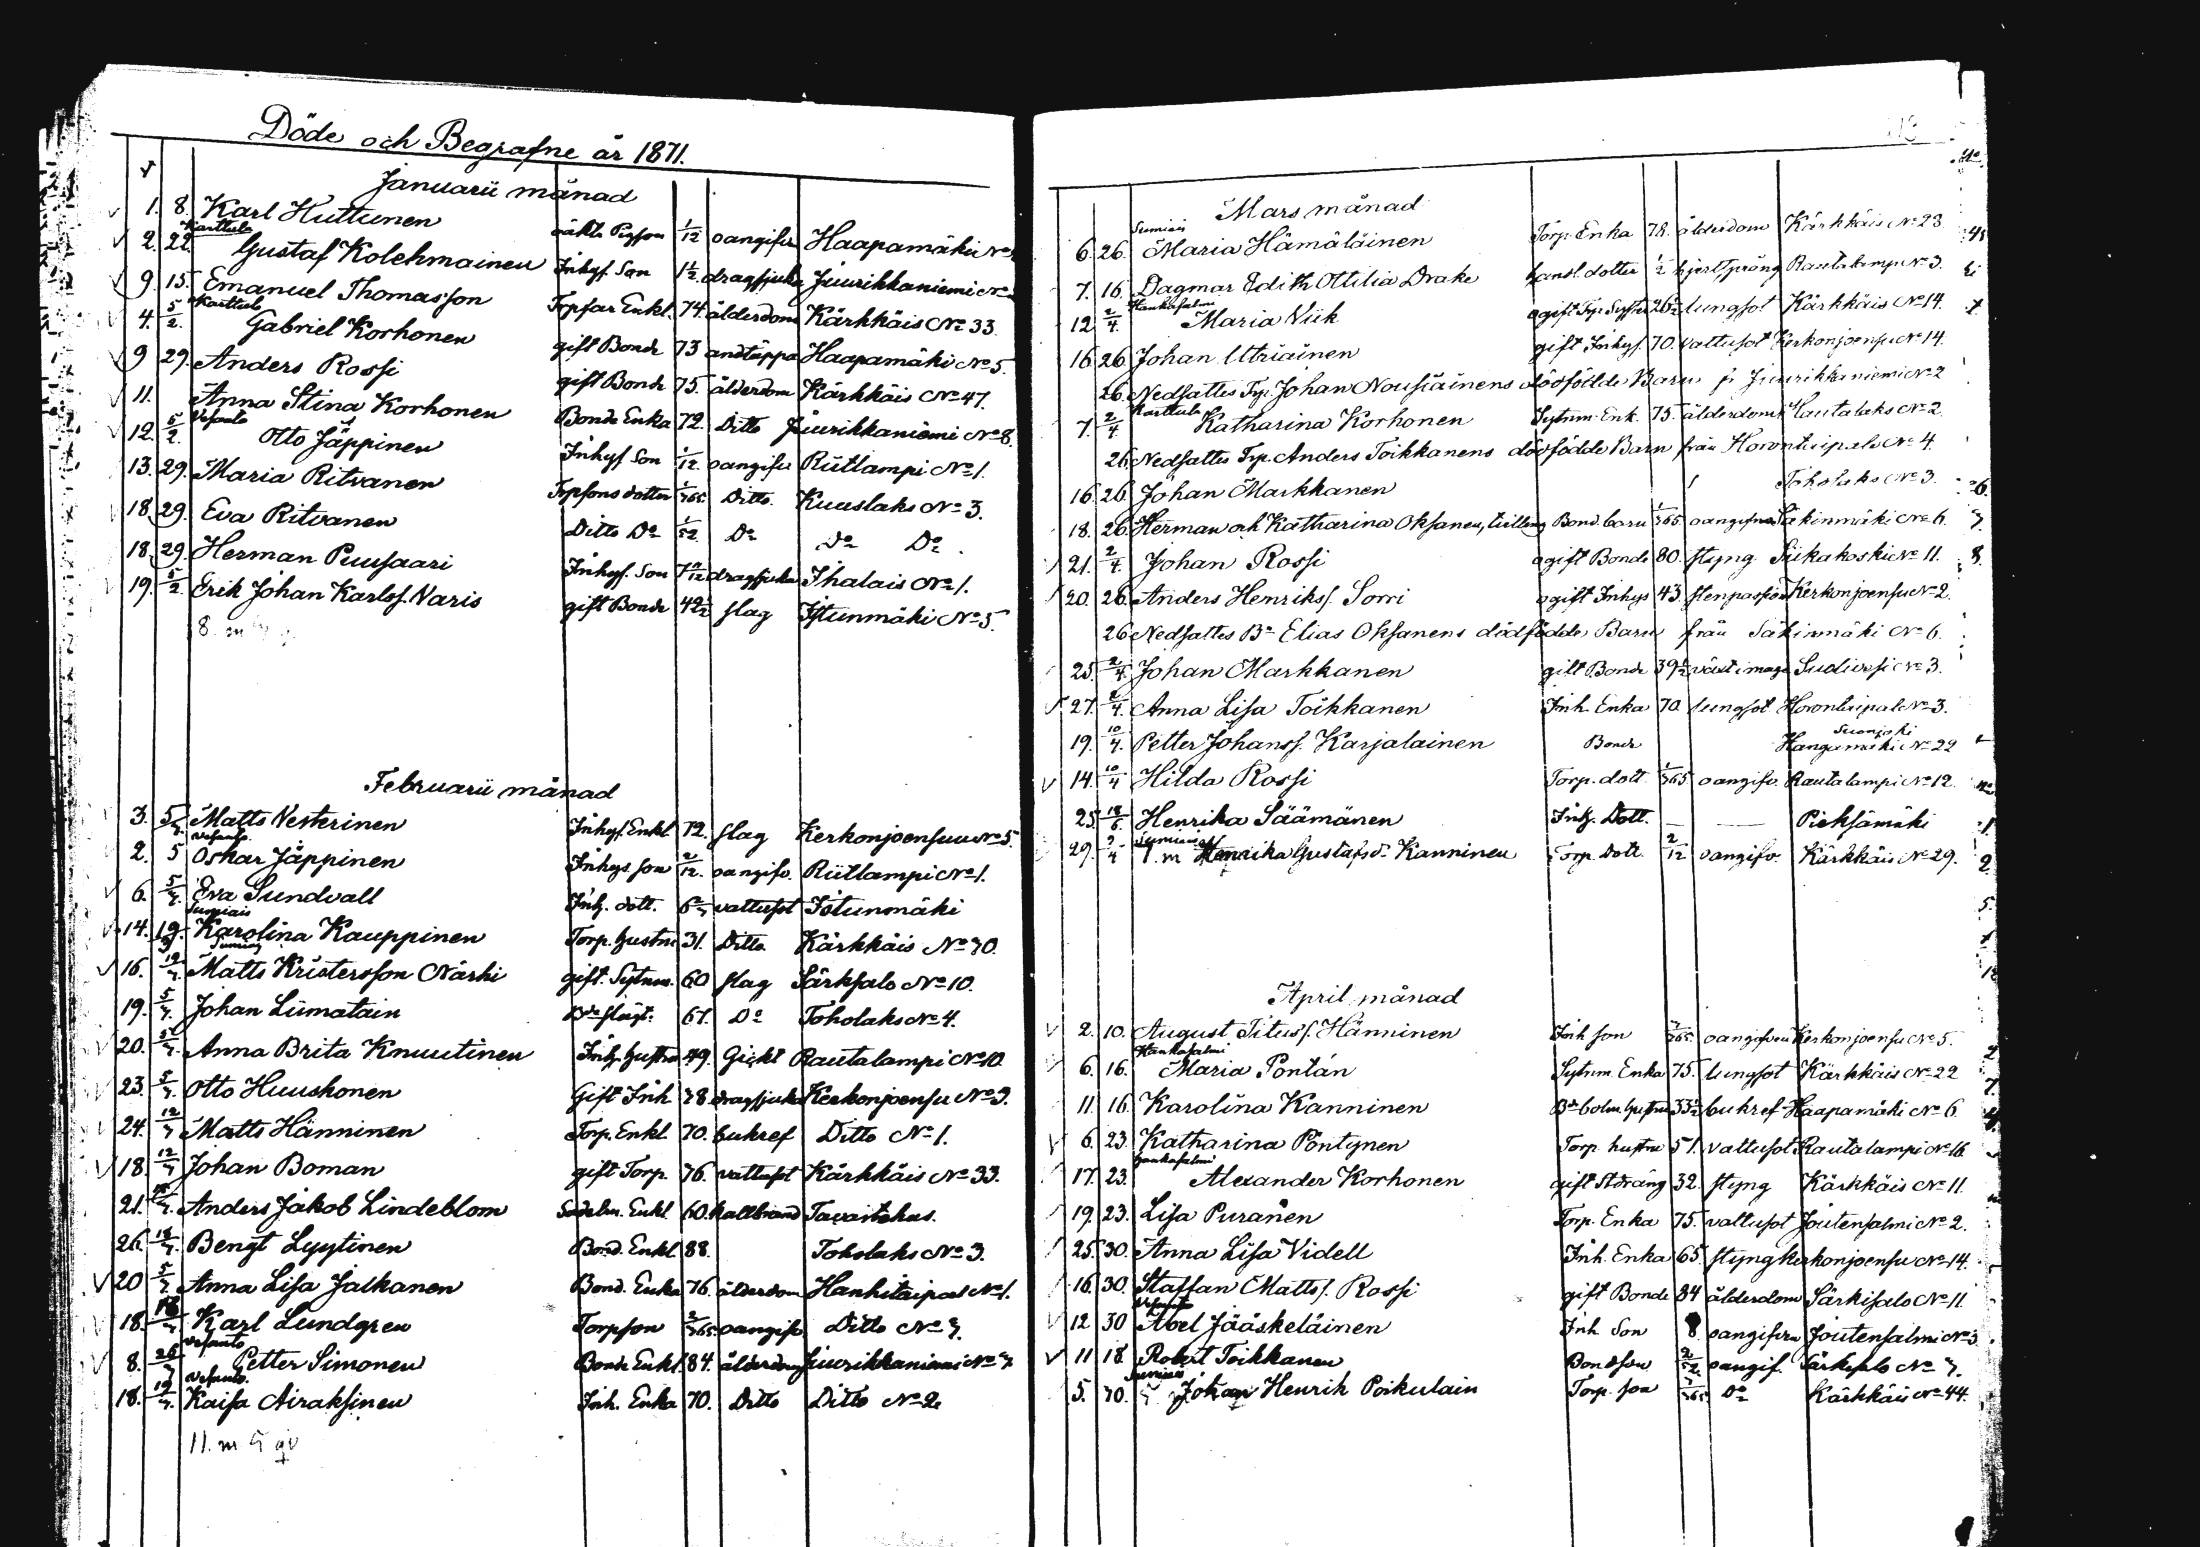 Döde och Begrafne år 1871.
Januarii månad
1. 8. Karl Huttunen oäkta Pigson 1/12 oangifv Haapamäki No
Karttula
2. 22. Gustaf Kolehmainen Inhys. Son 1 1/2 dragsjuka Juurikkaniemi No
9. 15. Emanuel Thomasson Torpfar Enkl. 74. ålderdom Kärkkäis No 33.
Karttula
4. 5/2. Gabriel Korhonen gift Bonde 73 andtäppa Haapamäki No 5.
9 29. Anders Rossi gift Bonde 75. ålderdom Kärkkäis No 47.
11. Anna Stina Korhonen Bonde Enka 72. Ditto Juurikkaniemi No 8.
Vesanto
12. 5/2. Otto Jäppinen Inhys Son 1/12. oangifv Riitlampi No 1.
13. 29. Maria Ritvanen Torpsons dotter 1/365. Ditto. Kuuslaks No 3.
18. 29. Eva Ritvanen Ditto Do 1/52. Do Do Do.
18. 29. Herman Puusaari Inhys. Son dragsjuka Ihalais No 1.
19. 5/2 Erik Johan Karlss. Naris gift Bonde 42 1/2 slag Istunmäki No 5.
8. m
Februarii månad
3. 5/3 Matts Vesterinen Inhys Enkl 72. slag Kerkonjoensuu No 5.
Vesanto.
2. 5 Oskar Jäppinen Inhys son 2/12. oangifv. Riitlampi No 1.
6. 5/3. Eva Sundvall Inh. dott. vattusot Istunmäki
Sumiais
14. 19. Karolina Kauppinen Torp. hustru 31. Ditto. Kärkkäis No 30.
Sumiais
16. 19/3. Matts Kristersson Närhi gift. Sytnm. 60 slag Särksalo No 10.
19. 5/3. Johan Liimatain 67. Do Toholaks No 4.
20. 5/3. Anna Brita Knuutinen Inh. hustru 49. Gickt Rautalampi No 10.
23. 5/3. Otto Huuskonen Gift Inh 78. dragsjuka Kerkonjoensu No 9.
24. 12/3 Matts Hänninen Torp. Enkl 70. bukref Ditto No 1.
18 12/3 Johan Boman gift Torp. 76. vattusot Kärkkäis No 33.
21. Anders Jakob Lindeblom Sadelm. Enkl 60. kallbrand Tavastehus.
26. 12/3. Bengt Lyytinen Bond. Enkl 88. Toholaks No 3.
20 5/3. Anna Lisa Jalkanen Bond. Enka 76. ålderdom Hanhitaipal No 1.
18. Karl Lundgren Torpson 2/365. oangifv Ditto No 3.
Vesanto
8. 26/3 Petter Simonen Bonde Enkl 84. ålderdom Juurikkaniemi No 3
Vesanto.
18. 12/3. Kaisa Airaksinen Inh. Enka 70. Ditto Ditto No 2.
11. m 5 qv
Mars månad
Sumiais
6. 26. Maria Hämäläinen Torp. Enka 78. ålderdom Kärkkäis No 23
7. 16. Dagmar Edith Ottilia Drake hansl. dotter 1/2 hjertsprång Rautalampi No 3.
Hankasalmi
12. 2/4. Maria Viik ogift Trp. Syster lungsot Kärkkäis No 14.
16. 26 Johan Utriainen gift Inhys. 70. vattusot Kerkonjoensu No 14.
26. Nedsattes Trp. Johan Nousiainens dödfödde Barn fr Juurikkaniemi No 2
Karttula
7. 2/4 Katharina Korhonen Sytnm. Enk. 75. ålderdom Hautalaks No 2.
26 Nedsattes Trp. Anders Toikkanens dödfödde Barn från Horontaipale No 4.
16. 26. Johan Markkanen Toholaks No 3.
18. 26. Herman och Katharina Oksanen, tvilling Bond. barn 1/365 oangifna Säkinmäki No 6.
21. 2/4. Johan Rossi ogift Bonde 80. styng Siikakoski No 11.
20. 26. Anders Henrikss. Sorri ogift Inhys 43. stenpassion Kerkonjoensu No 2.
26 Nedsattes Bn Elias Oksanens dödfödde Barn från Säkinmäki No 6.
25. 2/4. Johan Markkanen gift Bonde 39 1/2 Sudiais No 3.
27. 2/4. Anna Lisa Toikkanen Inh. Enka 70. lungsot Horontaipale No 3.
19. 10/4. Petter Johanss. Karjalainen Bonde Suonjoki
Hangamäki No 22
14. 10/4 Hilda Rossi Torp. dott. 1/365 oangifv. Rautalampi No 12.
25. 18/6. Henrika Säämänen Inh. Dott. — — Pieksämäki
Sumiais
29. 9/4 Henrika Gustafsd. Kanninen Torp. Dott. 2/12 oangifv. Kärkkäis No 29.
April månad
2. 10. August Tituss. Hänninen Inh son oangifven Kerkonjoensu No 5.
Hankasalmi
6. 16. Maria Pontán Sytnm. Enka 75. lungsot Kärkkäis No 22
11. 16. Karolina Kanninen Bn bolm. hustru 33 1/2 bukref Haapamäki No 6.
6. 23. Katharina Pöntynen Torp. hustru 51. vattusot Rautalampi No 16.
Hankasalmi
17. 23. Alexander Korhonen gift Stdräng 32. styng Kärkkäis No 11.
19. 23. Lisa Puranen Torp. Enka 75. vattusot Joutensalmi No 2.
25. 30. Anna Lisa Videll Inh. Enka 65. styng Kerkonjoensu No 14.
16. 30. Staffan Mattss. Rossi gift Bonde 84 ålderdom Särkisalo No 11.
Vesanto
12 30 Abel Jääskeläinen Inh Son 8. oangifven Joutensalmi No 3
11 18. Robert Toikkanen Bondson 2/52 oangif. Särkisalo No 3.
Sumiais
5. 30. Johan Henrik Poikulain Torp. son Do Kärkkäis No 44.